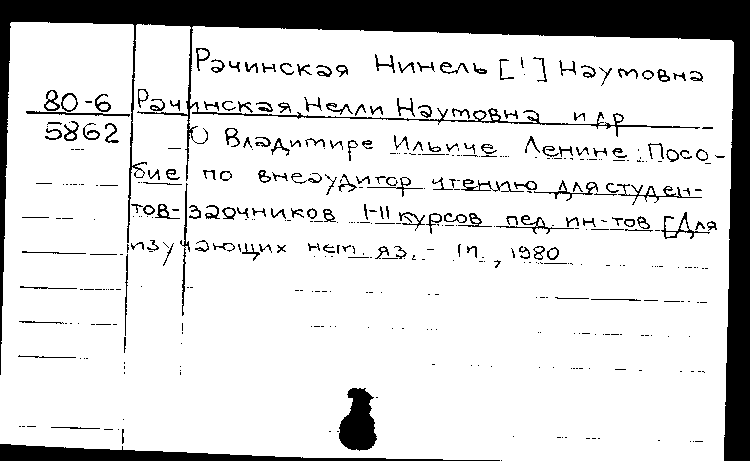 Рачинская Нинель [!] Наумовна
80-6 Рачинская, Нелли Наумовна и др
5862 О Владимире Ильиче Ленине: Посо-
бие по внеаудитор чтению для студен-
тов-заочников I-II курсов пед ин-тов [Для
изучающих нем. яз. - М., 1980